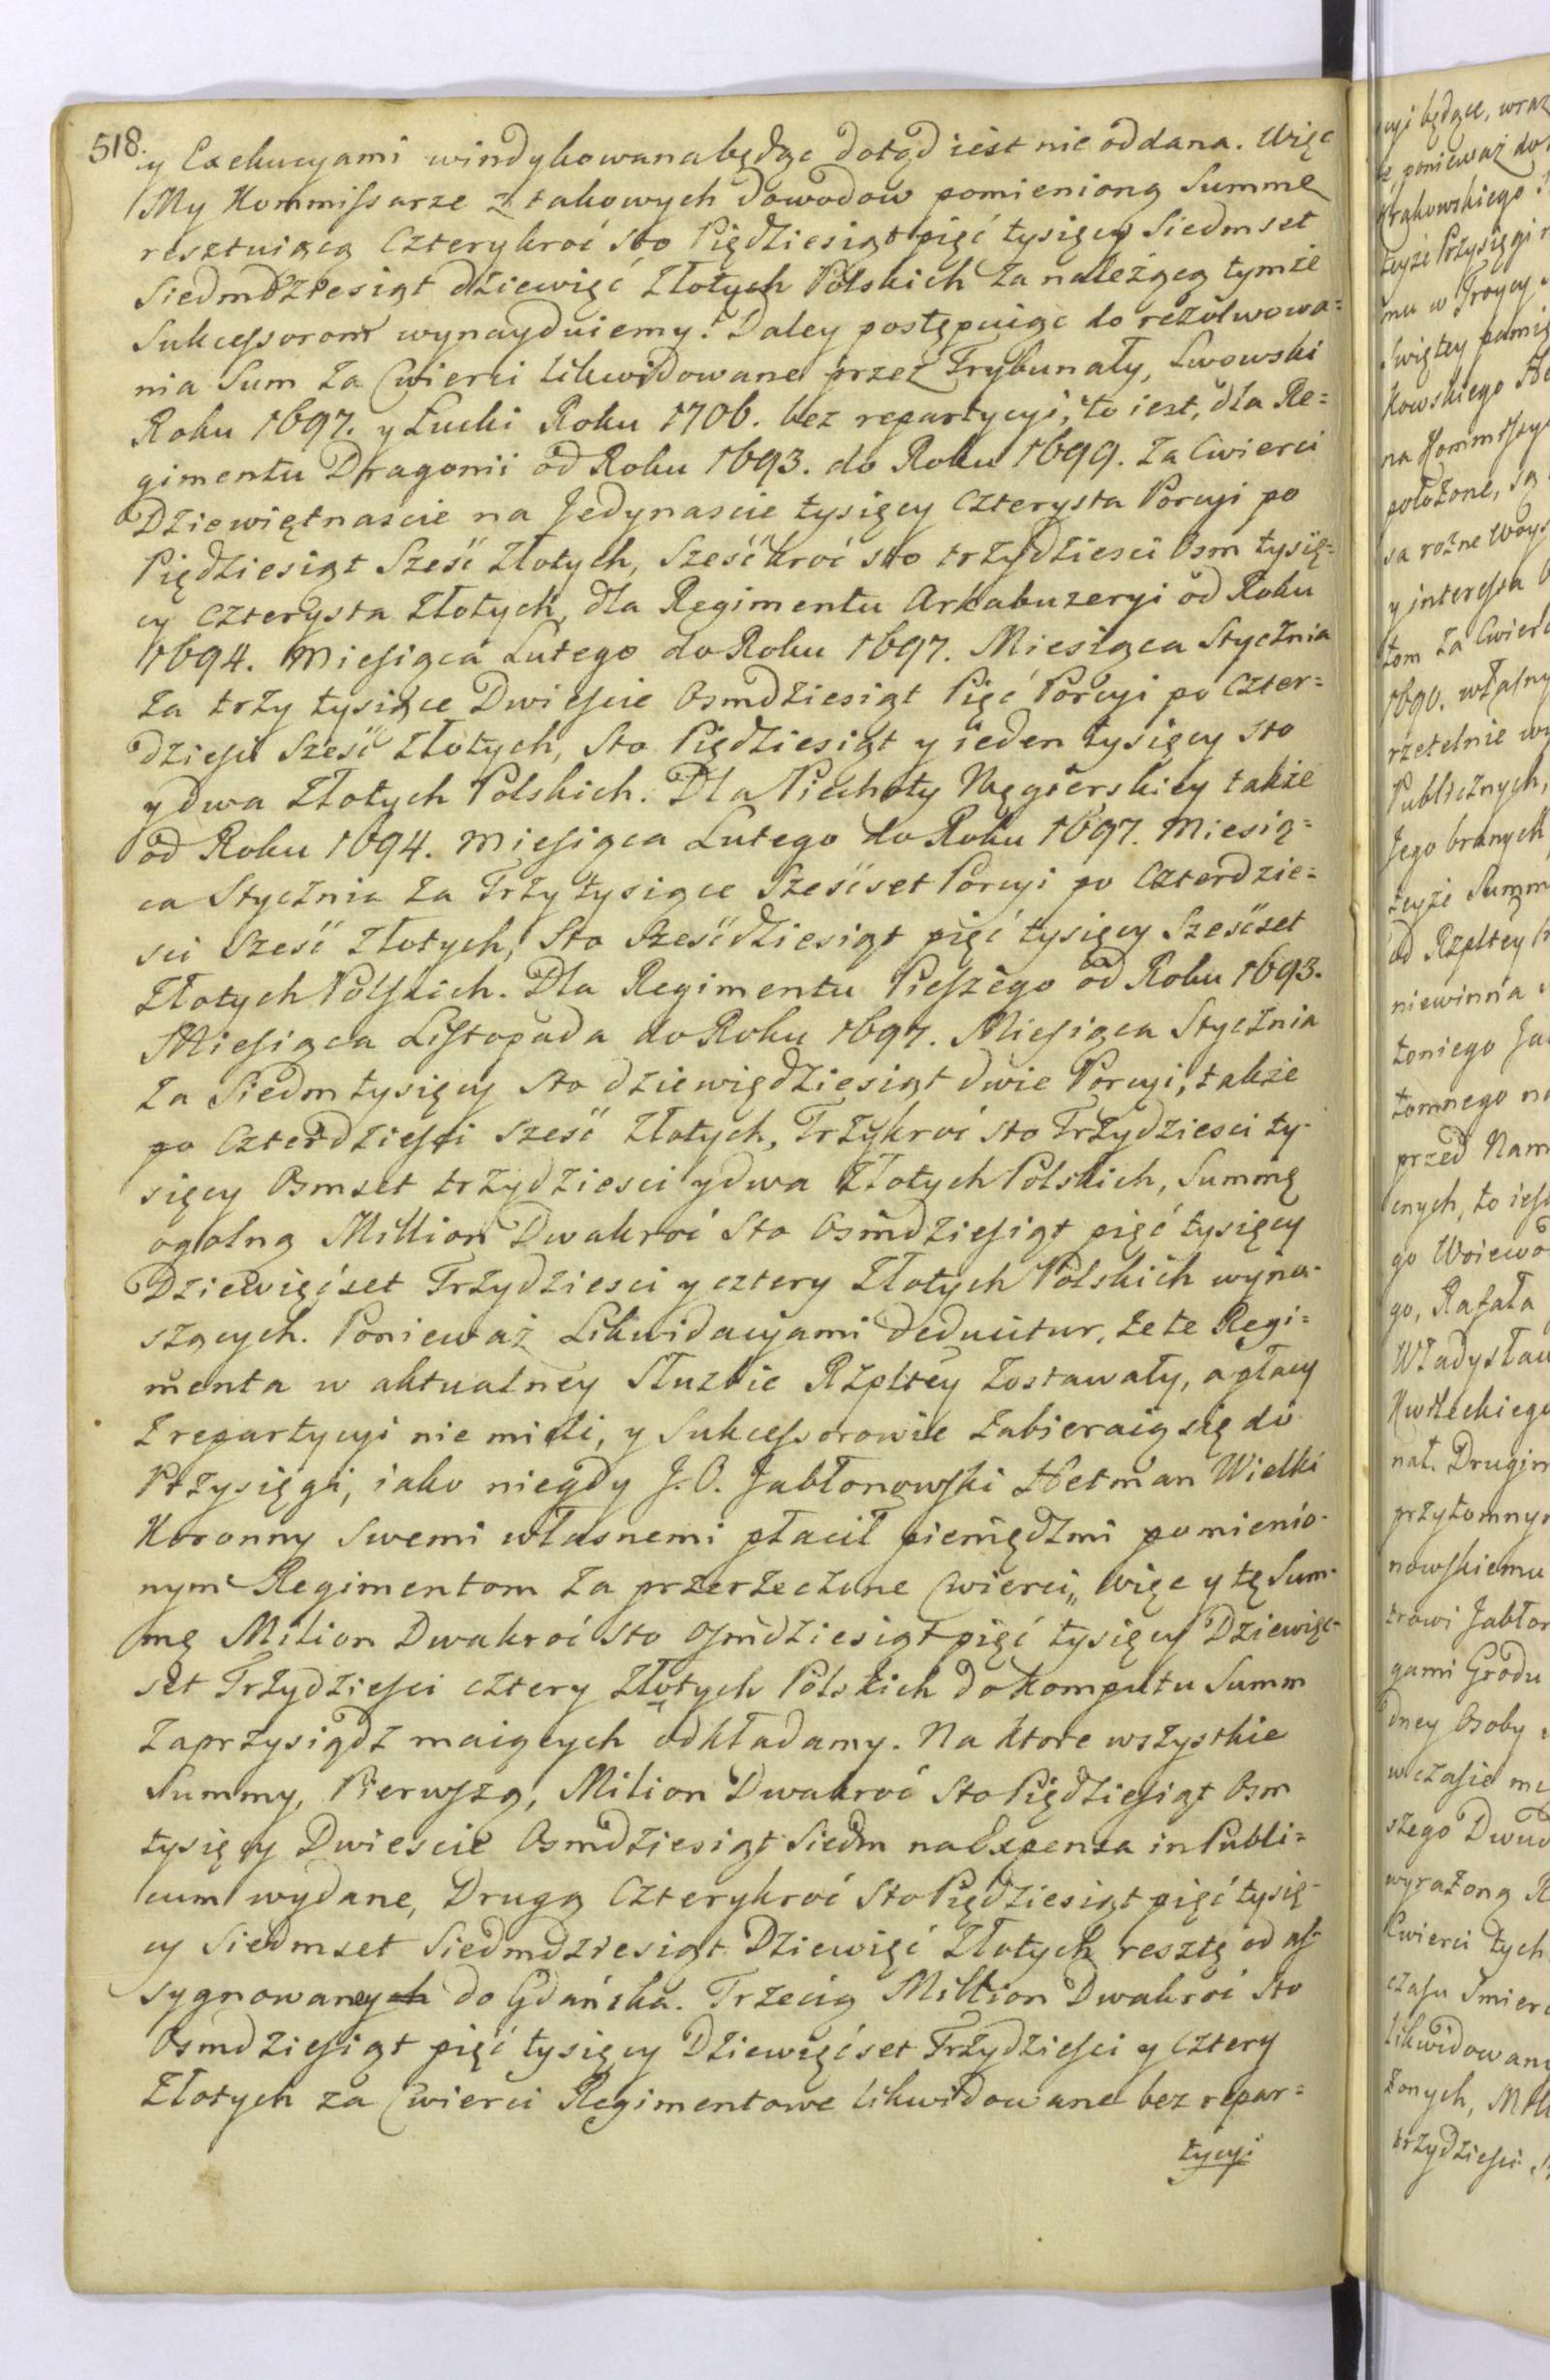 518.
y Exekucyami windykowana będąc dotąd iest nie oddana. Więc
My Kommissarze z takowych dowodow pomienioną Summę
resztuiącą Czterykroć sto Pięćdziesiąt pięć tysięcy Siedmset
Siedmdziesiąt dziewięć Złotych Polskich za należącą tymże
Sukcessorom wynayduiemy. Daley postępuiąc do rezolwowa=
nia Sum za Cwierci likwidowane przez Trybunały, Lwowski
Roku 1697. y Łucki Roku 1706. bez repartycyi, to iest, dla Re=
gimentu Dragonii od Roku 1693. do Roku 1699. za Cwierci
Dziewiętnascie na Jedynascie tysięcy Czterysta Porcyi po
Piędziesiąt Sześć Złotych, Sześćkroć sto trzydziesci Osm tysię=
cy Czterysta Złotych, dla Regimentu Arkabuzeryi od Roku
1694. Miesiąca Lutego do Roku 1697. Miesiąca Stycznia
za trzy tysiące Dwiescie Osmdziesiąt Pięć Porcyi po Czter=
dziesci Sześć Złotych, Sto Piędziesiąt y ieden tysięcy sto
y dwa Złotych Polskich. Dla Piechoty Węgierskiey także
od Roku 1694. Miesiąca Lutego do Roku 1697. Miesią=
ca Stycznia za Trzy tysiące Sześćset Porcyi po Czterdzie=
sci Sześć Złotych, Sto Sześćdziesiąt pięć tysięcy Sześćset
Złotych Polskich. Dla Regimentu Pieszego od Roku 1693.
Miesiąca Listopada do Roku 1697. Miesiąca Stycznia
za Siedm tysięcy sto dziewiędziesiąt dwie Porcyi, także
po Czterdziesci Sześć Złotych, Trzykroć sto Trzydziesci ty-
sięcy Osmset trzydziesci y dwa Złotych Polskich, Summę
ogolną Million Dwakroć Sto Osmdziesiąt pięć tysięcy
Dziewięćset Trzydziesci y cztery Złotych Polskich wyno-
szących. Ponieważ Likwidacyami deducitur, że te Regi=
menta w aktualney Służbie Rzpltey zostawały, a płacy
z repartycyi nie mieli, y Sukcessorowie zabieraią się do
Przysięgi, iako niegdy J. O. Jabłonowski Hetman Wielki
Koronny Swemi własnemi płacił pieniędzmi pomienio-
nym Regimentom za przerzeczone Cwierci,, więc y tę Sum-
mę Milion Dwakroć sto osmdziesiąt pięć tysięcy Dziewięć-
set Trzydziesci cztery Złotych Polskich do komputu Summ
zaprzysiądz maiących odkładamy. Na ktore wszystkie
Summy, Pierwszą, Milion Dwakroć Sto Piędziesiąt Osm
tysięcy Dwiescie Osmdziesiąt Siedm na Expensa in Publi=
cum wydane, Drugą Czterykroć Sto Piędziesiąt pięć tysię-
cy Siedmset Siedmdziesiąt Dziewięć Złotych resztę od as-
sygnowaney do Gdańska. Trzecią Million Dwakroć Sto
Osmdziesiąt pięć tysięcy Dziewięćset Trzydziesci y Cztery
Złotych za Cwierci Regimentowe likwidowane bez repar=
tycyi